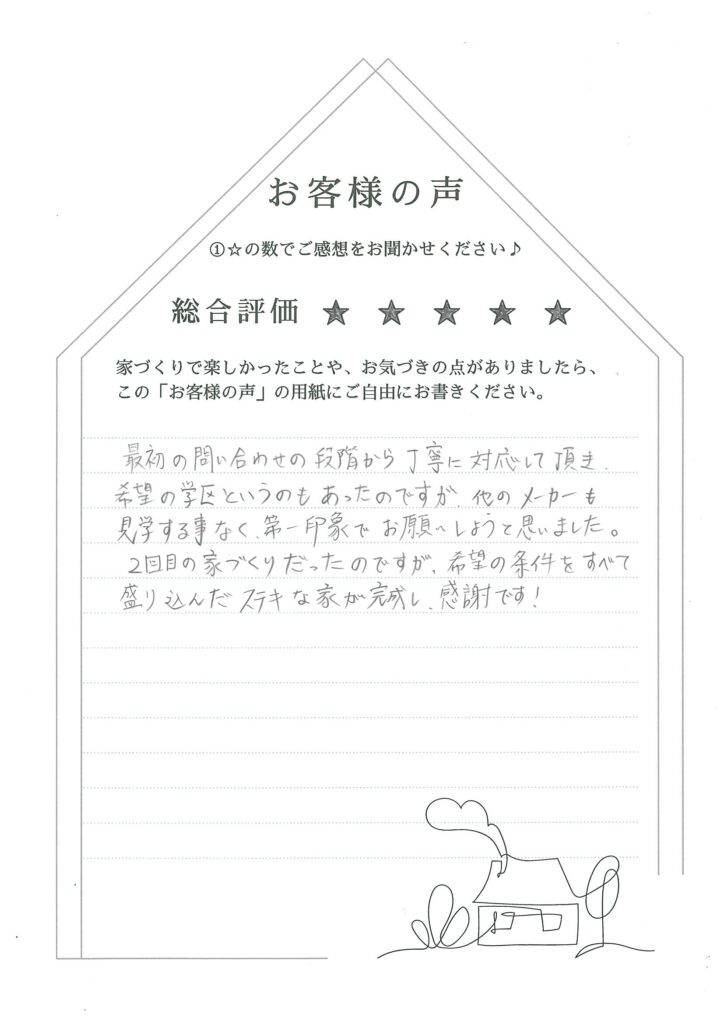 お客様の声
①☆の数でご感想をお聞かせください♪
総合評価 ★ ★ ★ ★ ★
家づくりで楽しかったことや、お気づきの点がありましたら、
この「お客様の声」の用紙にご自由にお書きください。
最初の問い合わせの段階から丁寧に対応して頂き、
希望の学区というのもあったのですが、他のメーカーも
見学する事なく、第一印象でお願いしようと思いました。
2回目の家づくりだったのですが、希望の条件をすべて
盛り込んだステキな家が完成し、感謝です!